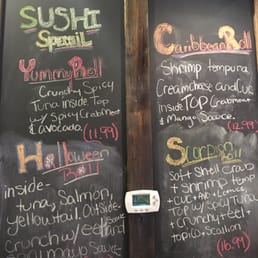 SUSHI
Special
Yummy Roll
Crunchy Spicy
Tuna inside Top
w/ Spicy Crabment
& avocado.
(11.99)
Halloween
Roll
inside-
tuna, Salmon,
yellowtail. Outside-
Crunch w/ eel and
mayo Sauce
Caribbean Roll
Shrimp tempura
Creamchase and Cuc
inside TOP Crabment
& Mango Sauce.
(12.99)
Scorpion
Roll
Soft Shell Crab
+ Shrimp temp
+ CUC + AVO + Lettuce
TOP w/ Spicy Tuna
+ Crunchy + eel +
+ Scallion
(16.99)